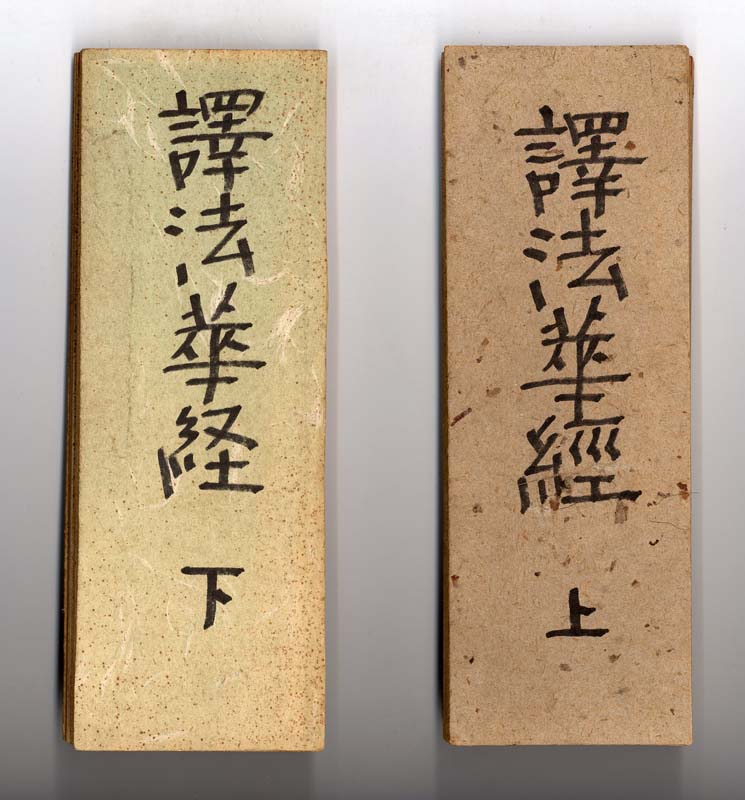 譯法華經 上
譯法華経 下